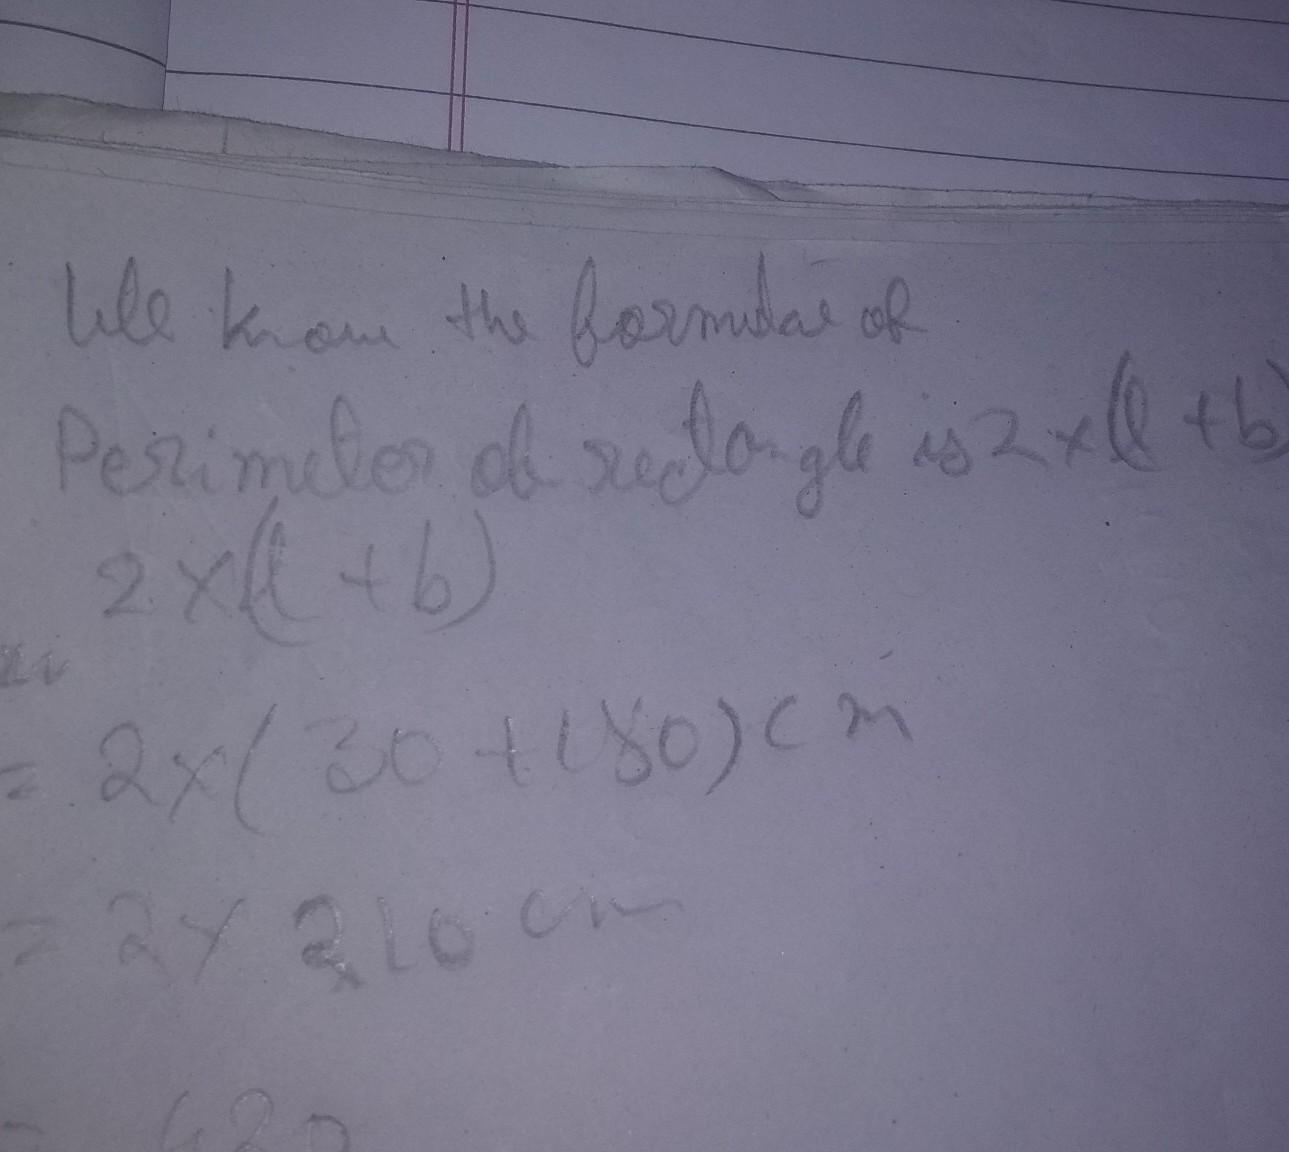 We know the formulae of
Perimeter of rectangle is 2 x (l + b)
2 x (l + b)
= 2 x ( 30 + 180) cm
= 2 x 210 cm
= 420